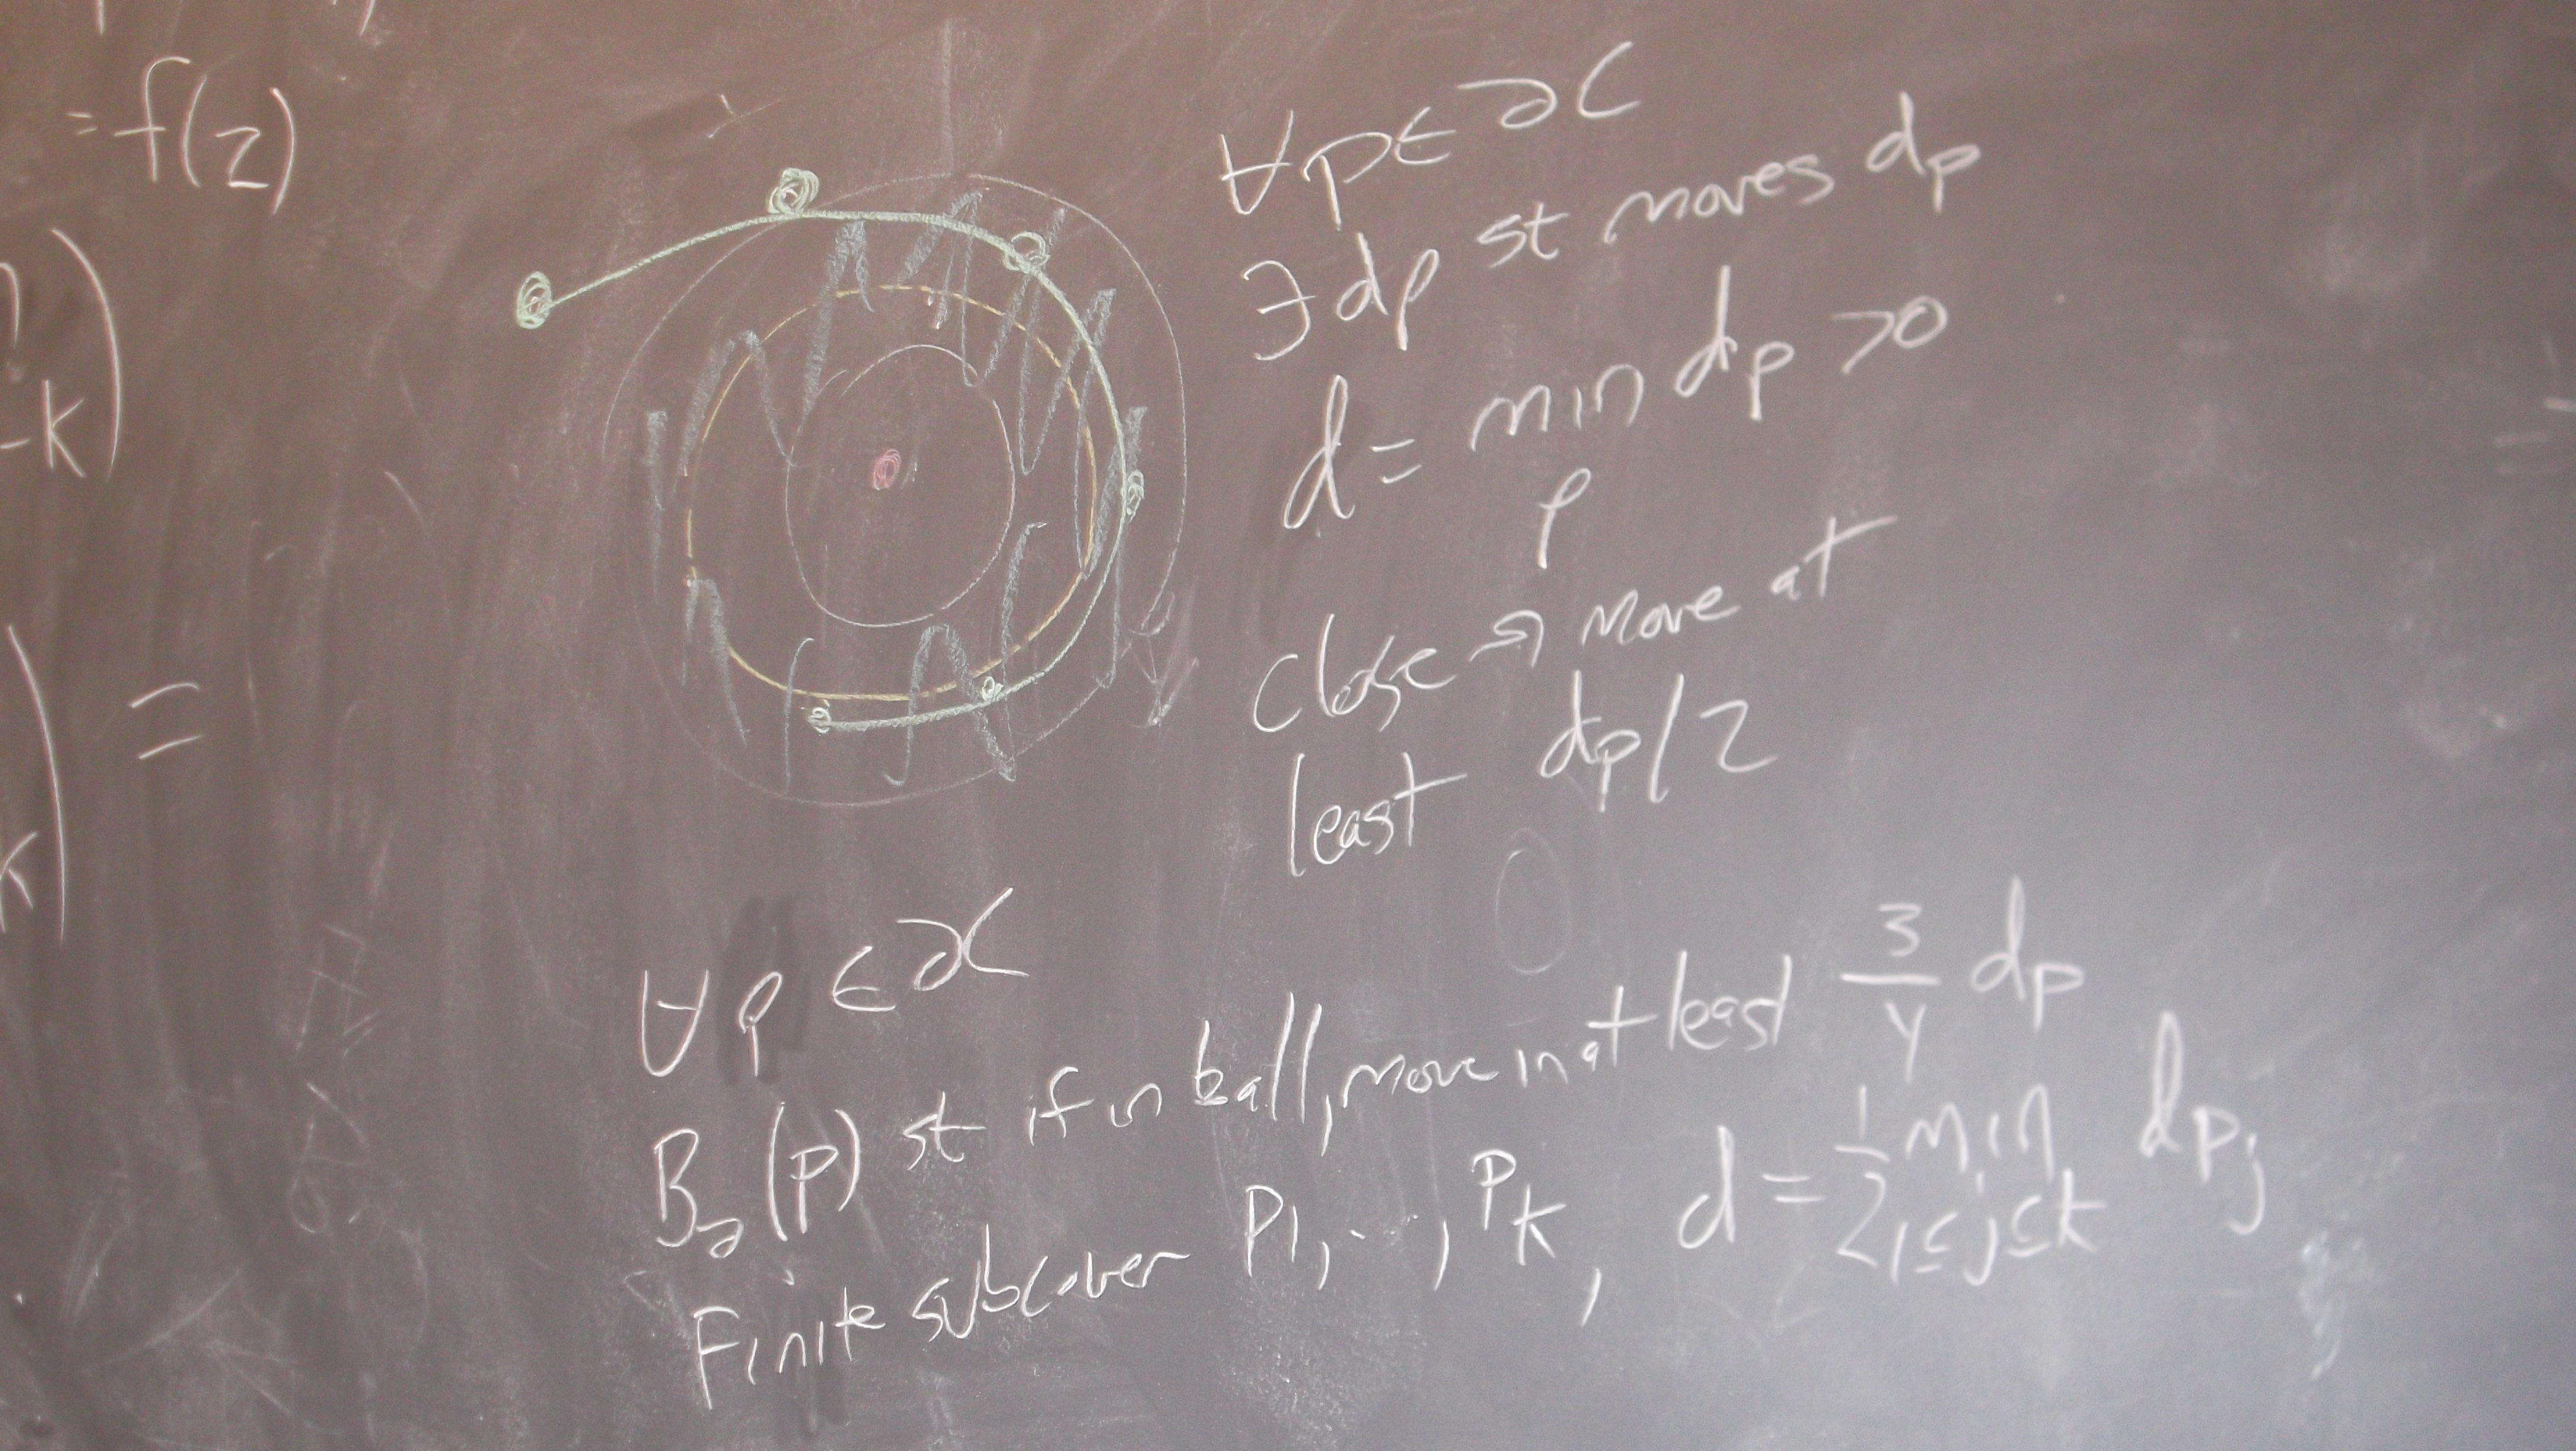 = f(z)
-k)
k) =
∀p∈∂C
∃ dp st moves dp
d = min dp >0
p
close ⇒ move at
least dp/2
∀p∈∂C
B∂(p) st if in ball, move in at least 3/4 dp
Finite subcover p1, .., pk, d = 1/2 min dpj
1≤j≤k